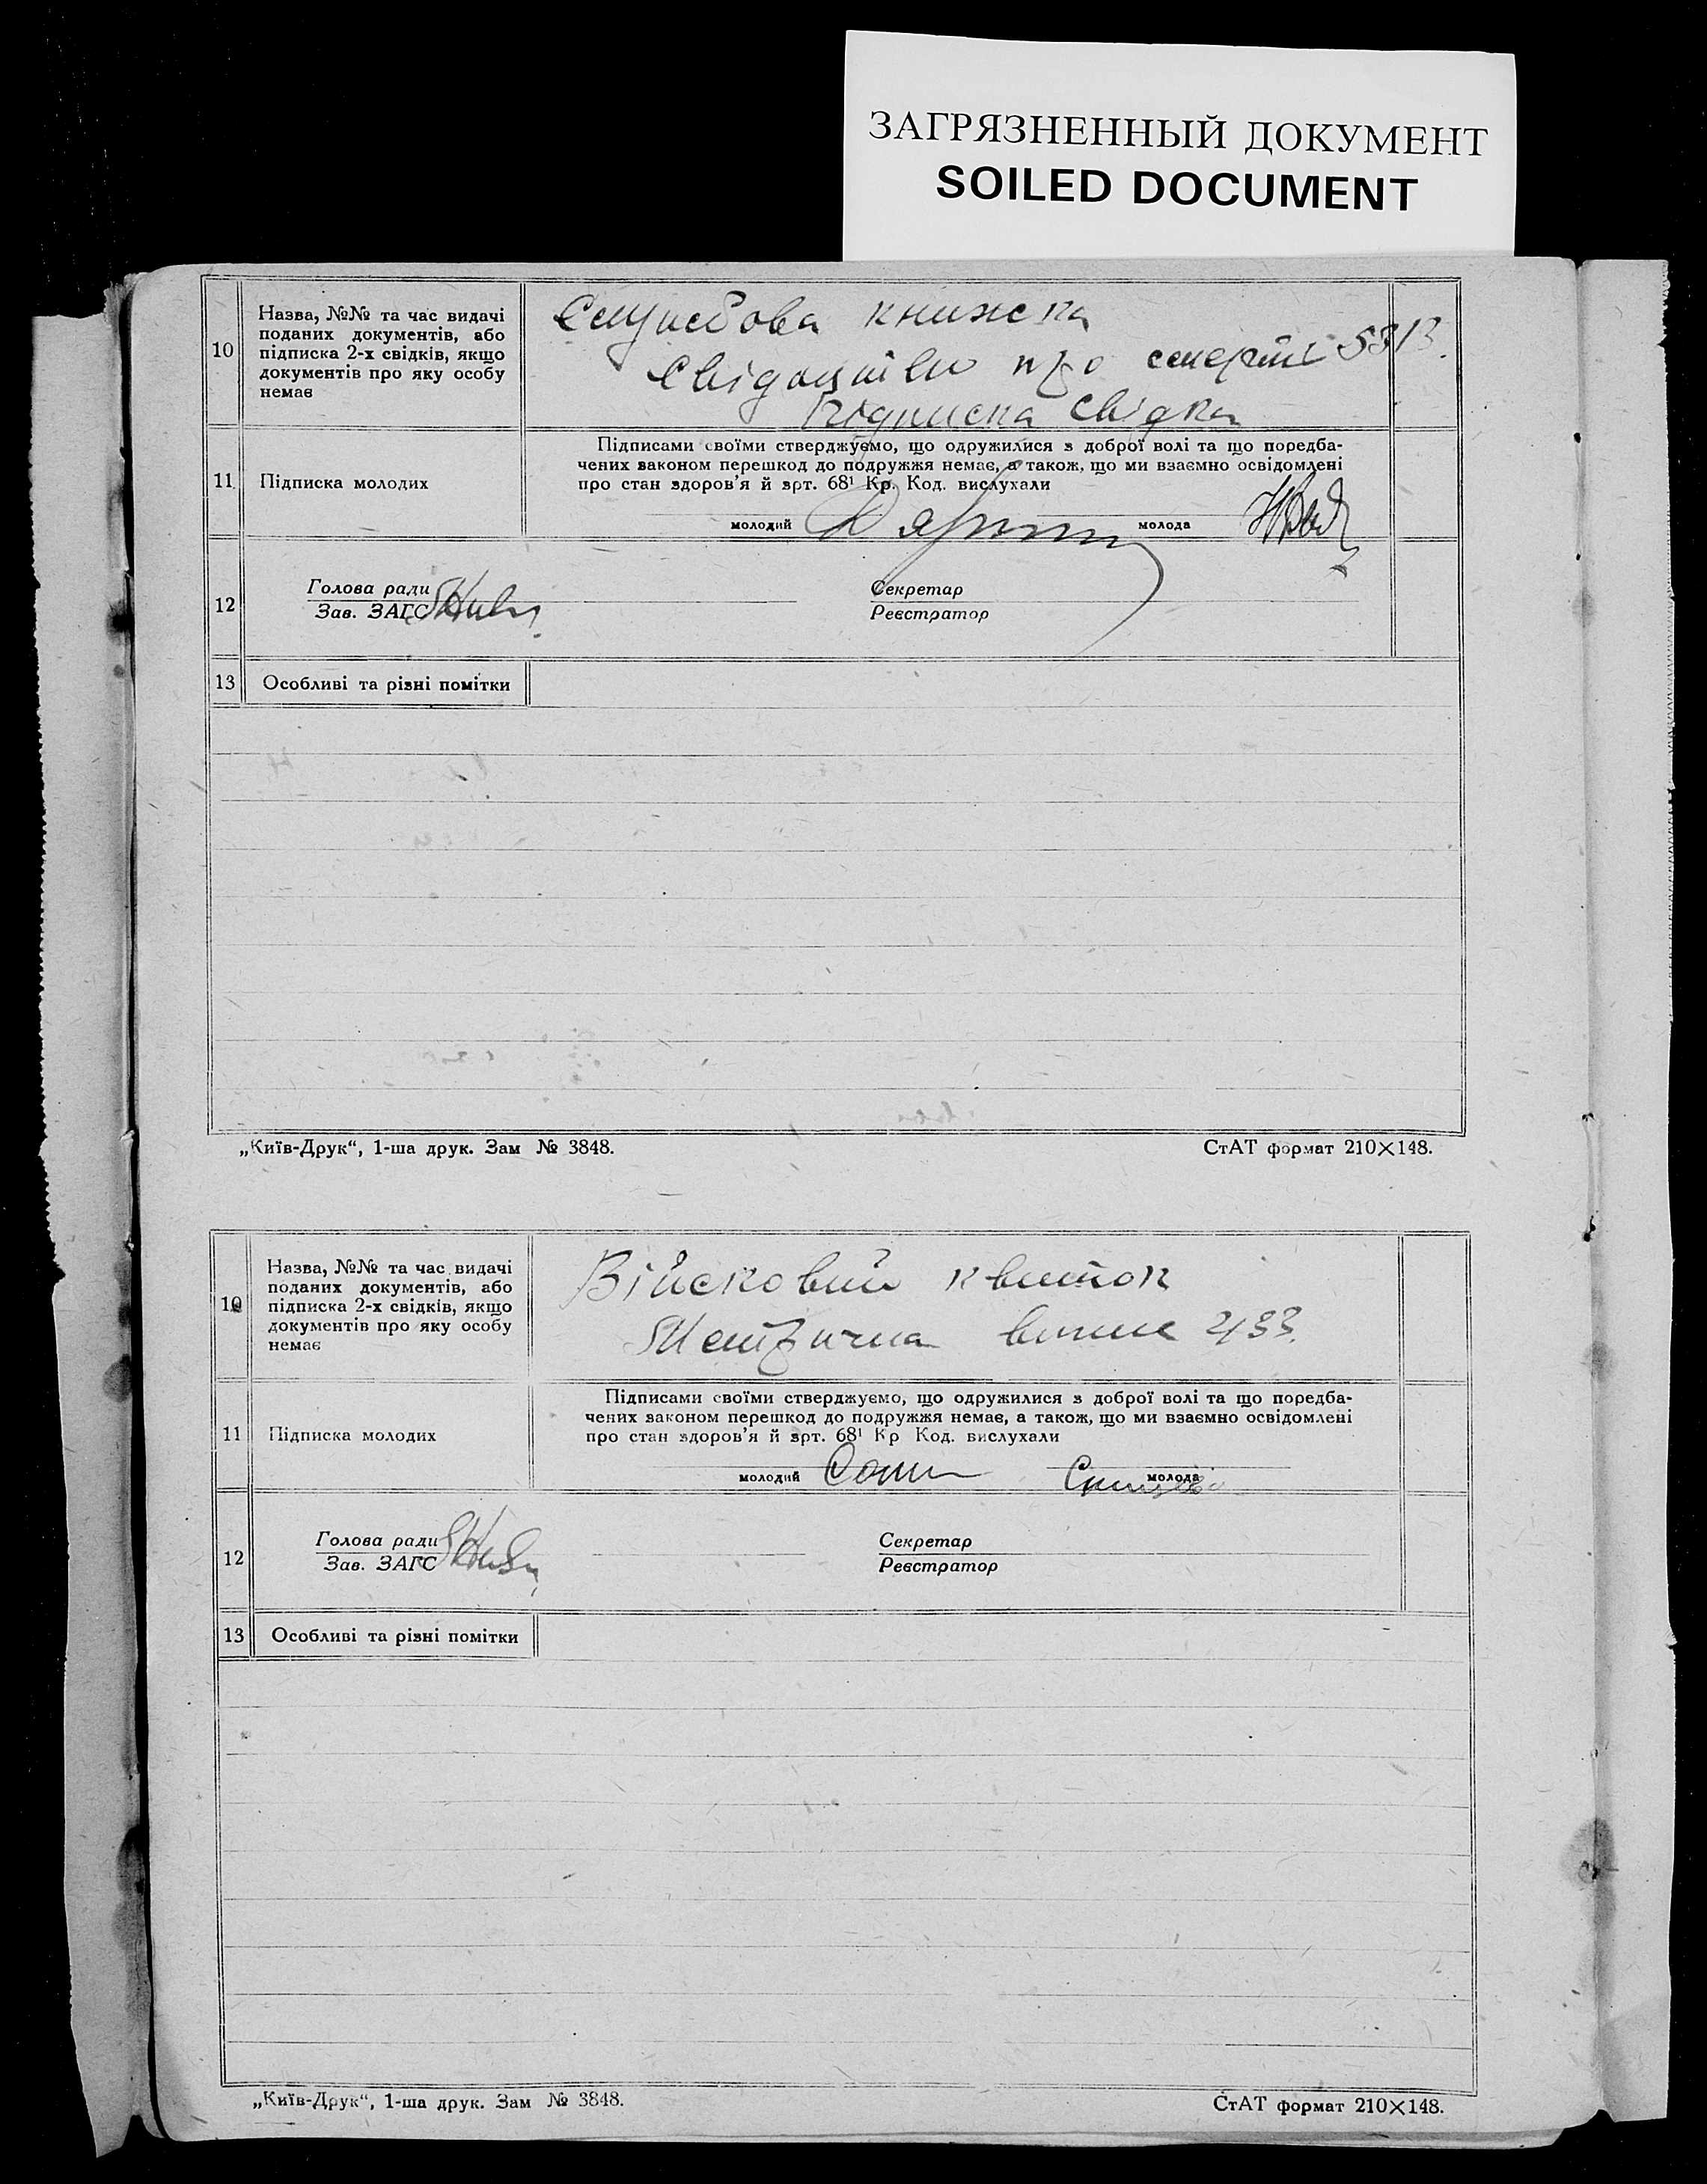 ЗАГРЯЗНЕННЫЙ ДОКУМЕНТ
SOILED DOCUMENT
10
Назва, №№ та час видачі
поданих документів, або
підписка 2-х свідків, якщо
документів про яку особу
немає
Службова книжка
Свідоцтво про смерть 5313.
Підписка свідка
11
Підписка молодих
Підписами своїми стверджуємо, що одружилися з доброї волі та що поредба-
чених законом перешкод до подружжя немає, а також, що ми взаємно освідомлені
про стан здоров'я й зрт. 68¹ Кр. Код. вислухали
молодий
молода
12
Голова ради
Зав. ЗАГС
Секретар
Реєстратор
13
Особливі та різні помітки
„Київ-Друк“, 1-ша друк. Зам № 3848.
СтАТ формат 210×148.
10
Назва, №№ та час видачі
поданих документів, або
підписка 2-х свідків, якщо
документів про яку особу
немає
Військовий квиток
Метрична випис 433.
11
Підписка молодих
Підписами своїми стверджуємо, що одружилися з доброї волі та що поредба-
чених законом перешкод до подружжя немає, а також, що ми взаємно освідомлені
про стан здоров'я й зрт. 68¹ Кр Код. вислухали
молодий
молода
12
Голова ради
Зав. ЗАГС
Секретар
Реєстратор
13
Особливі та різні помітки
„Київ-Друк“, 1-ша друк. Зам № 3848.
СтАТ формат 210×148.